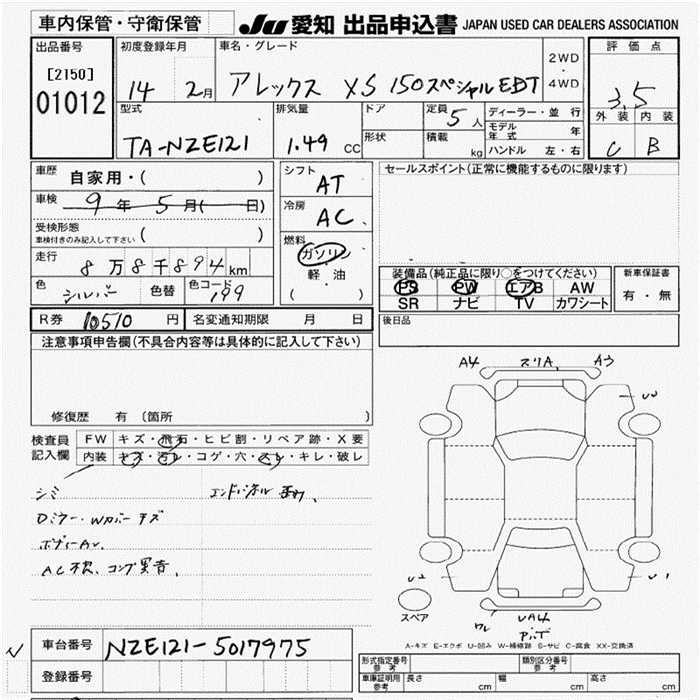 車内保管・守衛保管
JU 愛知 出品申込書 JAPAN USED CAR DEALERS ASSOCIATION
出品番号 初度登録年月 車名・グレード 2WD・4WD 評価点
[2150] 01012 14 2月 アレックス XS 150スペシャルEDT 3,5
型式 排気量 ドア 定員 5人 ディーラー・並行 外装 内装
TA-NZE121 1.49 CC 形状 積載 kg モデル年式 年 C B
ハンドル 左・右
車歴 自家用・( ) シフト AT セールスポイント(正常に機能するものに限ります)
車検 9年 5月( 日) 冷房 AC
受検形態 車検付きのみ記入して下さい ( ) 燃料 ガソリン・軽・油 ( )
走行 8万8千894km 装備品(純正品に限り○をつけてください) 新車保証書
色 シルバー 色替 色コード 199 PS PW エアB AW 有・無
SR ナビ TV カワシート
R券 10510円 名変通知期限 月 日 後日品
注意事項申告欄(不具合内容等は具体的に記入して下さい)
A4 スリA A3
U0
修復歴 有 〔箇所 〕
検査員記入欄 FW キズ・飛石・ヒビ割・リペア跡・X要
内装 キズ・汚レ・コゲ・穴・スレ・キレ・破レ
シミ
Dミラー・Wカバーキズ
ボディーAU
AC不良、コンプ異音、
U2 U1
スペア UA4
A-キズ E-エクボ U-凹み W-補修跡 S-サビ C-腐食 XX-交換済
車台番号 NZE121-5017975
登録番号
形式指定番号 参考 類別区分番号 参考
車庫証明用 参考 長さ cm 幅 cm 高さ cm